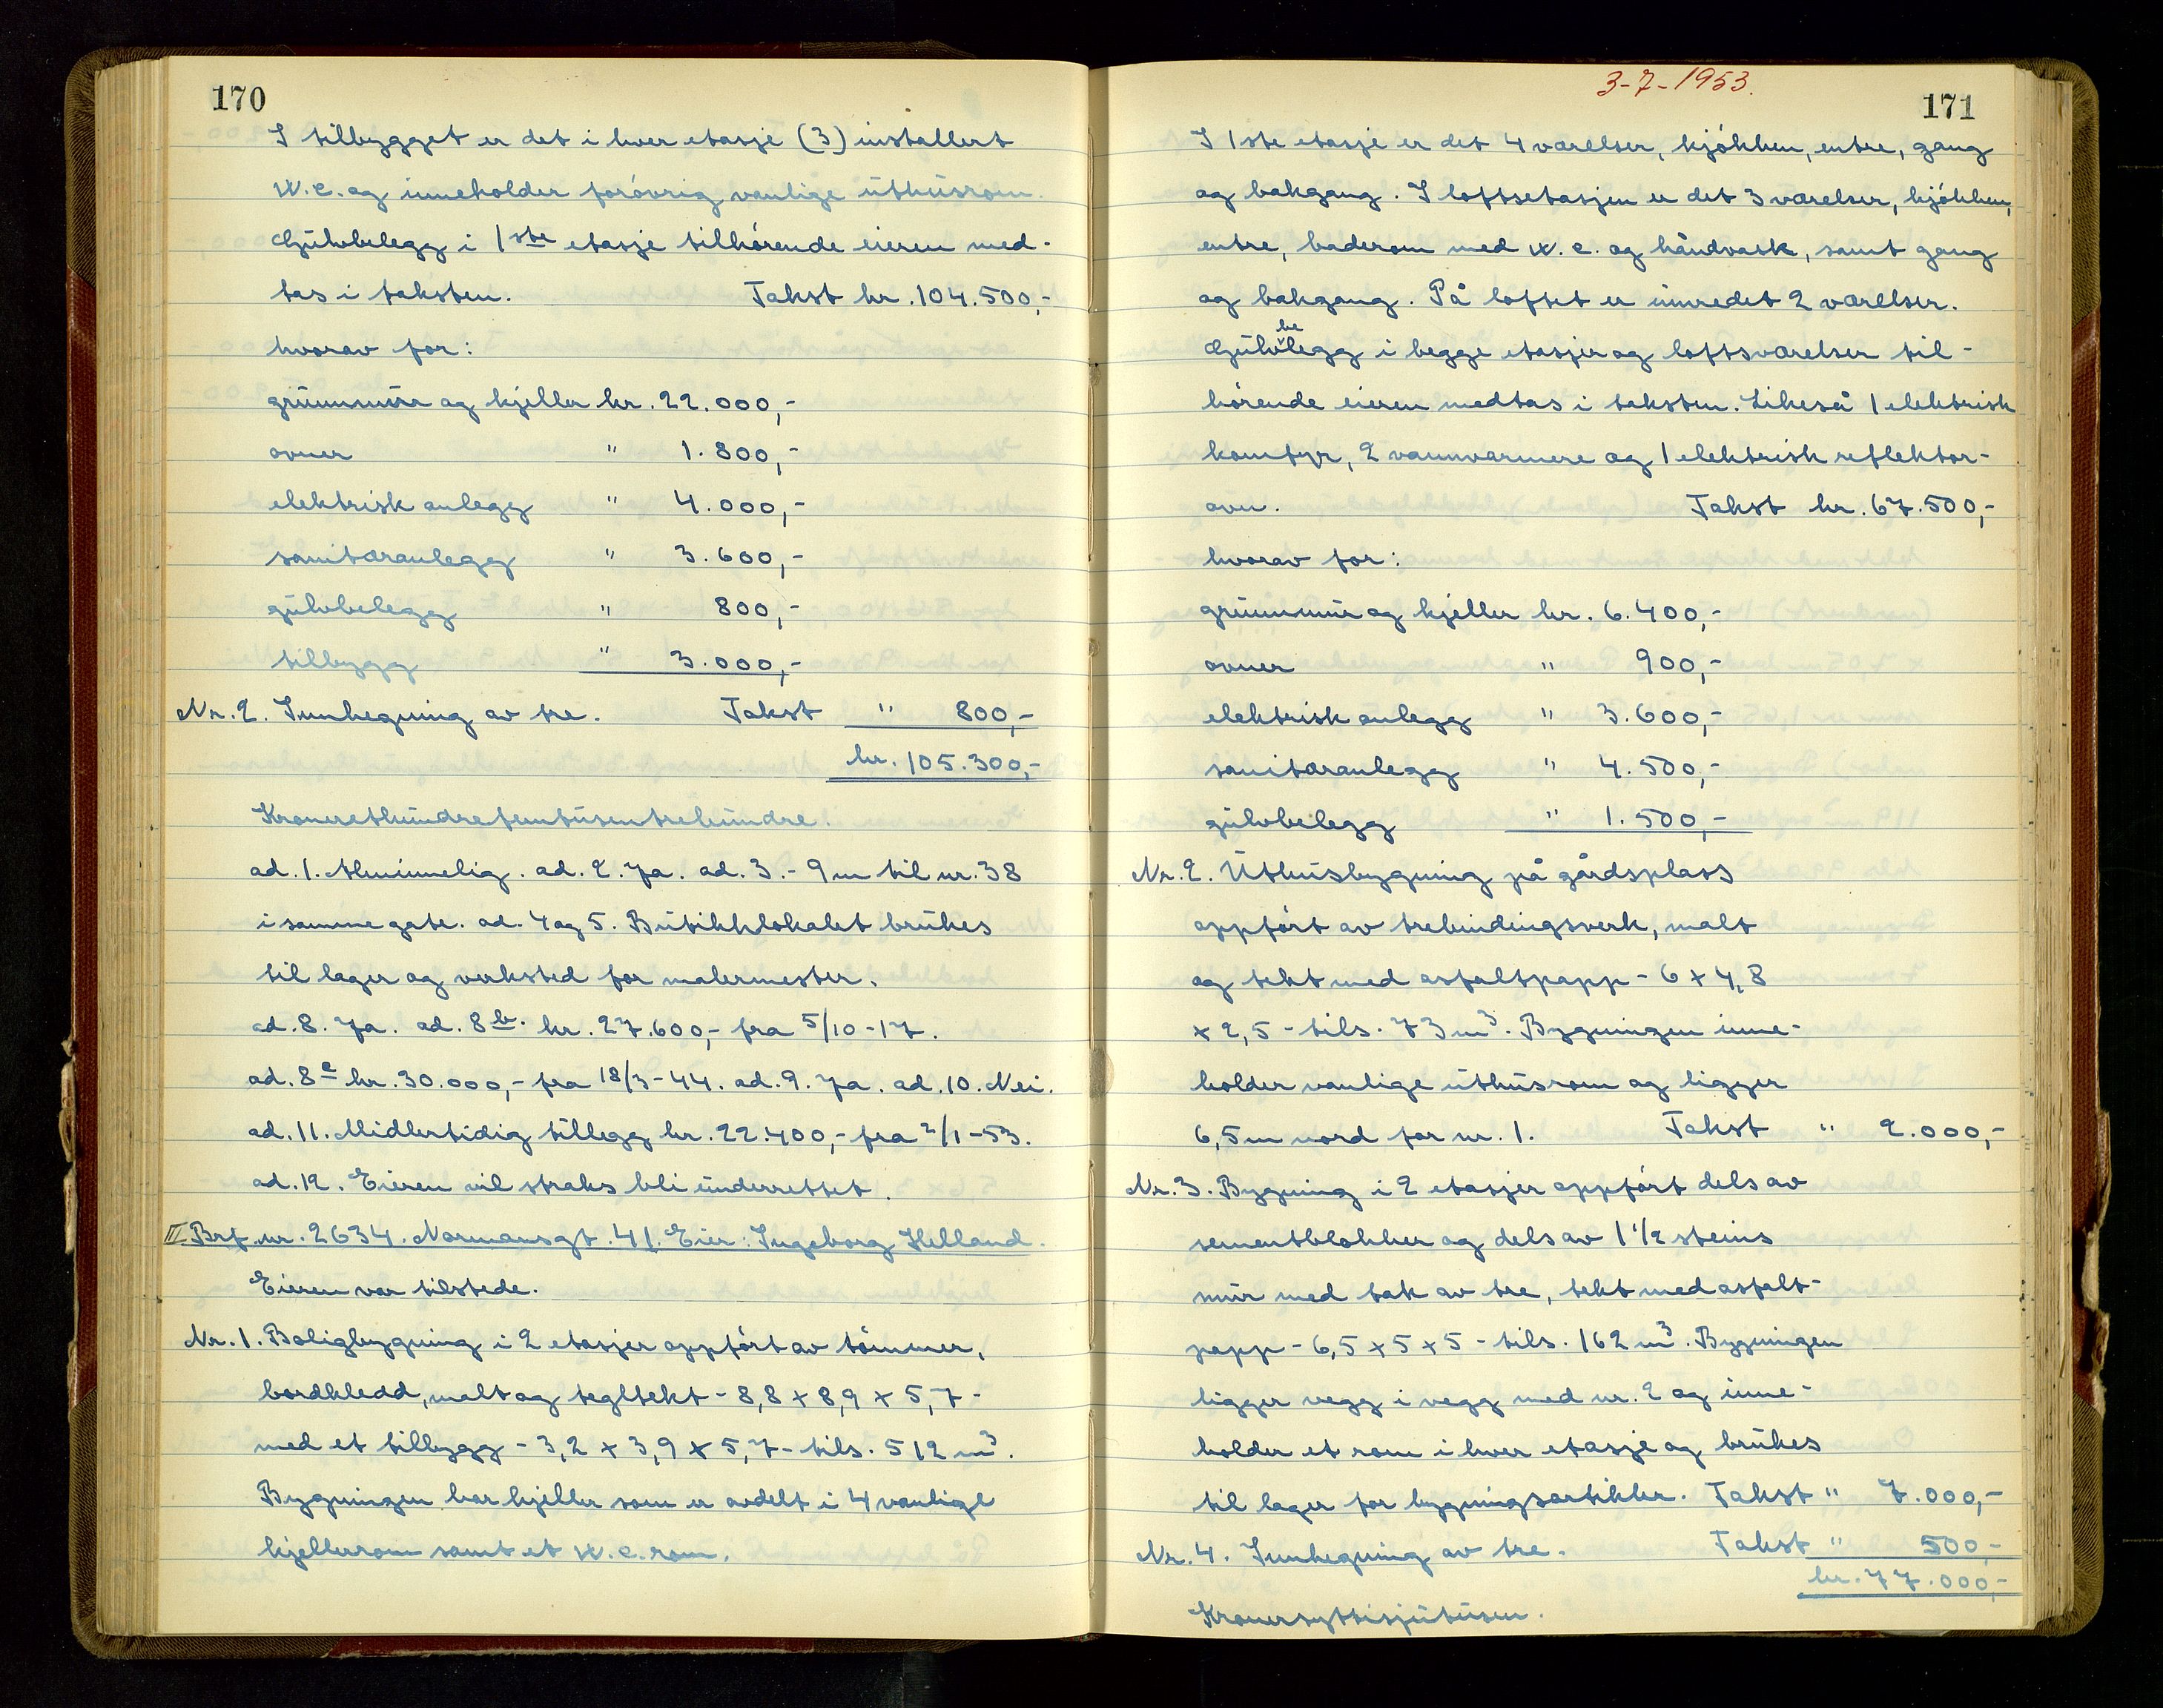 170
I tilbygget er det i hver etasje (3) installert
W.C. og inneholder forøvrig vanlige uthusrom.
Gulvbelegg i 1ste etasje tilhørende eieren med-
tas i taksten. Takst kr. 104.500,-
hvorav for:
grunnmur og kjeller kr. 22.000,-
ovner " 1.800,-
elektrisk anlegg " 4.000,-
sanitæranlegg " 3.600,-
gulvbelegg " 800,-
tilbygg " 3.000,-
Nr. 2. Innhegning av tre. Takst " 800,-
kr. 105.300,-
Kroneretthundrefemtusentrehundre.
ad. 1. Alminnelig. ad. 2. Ja. ad. 3. - 9 m til nr. 38
i samme gate. ad. 4 og 5. Butikklokalet brukes
til lager og verksted for malermester.
ad. 8. Ja. ad. 8 b. kr. 27.600,- fra 5/10-17.
ad. 8 c kr. 30.000,- fra 18/3-44. ad. 9. Ja. ad. 10. Nei.
ad. 11. Midlertidig tillegg kr. 22.400,- fra 2/1-53.
ad. 12. Eieren vil straks bli underrettet.
II. Brf. nr. 2634. Normansgt. 41. Eier: Ingeborg Helland.
Eieren var tilstede.
Nr. 1. Boligbygning i 2 etasjer oppført av tømmer,
bordkledd, malt og tegltekt - 8,8 x 8,9 x 5,7 -
med et tilbygg - 3,2 x 3,9 x 5,7 - tils. 512 m³.
Bygningen har kjeller som er avdelt i 4 vanlige
kjellerrom samt et W.C. rom.
3-7-1953.
171
I 1ste etasje er det 4 værelser, kjøkken, entre, gang
og bakgang. I loftsetasjen er det 3 værelser, kjøkken,
entre, baderom med W.C. og håndvask, samt gang
og bakgang. På loftet er innredet 2 værelser.
Gulvbelegg i begge etasjer og loftsværelser til-
hørende eieren medtas i taksten. Likeså 1 elektrisk
komfyr, 2 vannvarmere og 1 elektrisk reflektor-
ovn. Takst kr. 67.500,-
hvorav for:
grunnmur og kjeller kr. 6.400,-
ovner " 900,-
elektrisk anlegg " 3.600,-
sanitæranlegg " 4.500,-
gulvbelegg " 1.500,-
Nr. 2. Uthusbygning på gårdsplass
oppført av trebindingsverk, malt
og tekt med asfaltpapp - 6 x 4,8
x 2,5 - tils. 73 m³. Bygningen inne-
holder vanlige uthusrom og ligger
6,5 m nord for nr. 1. Takst " 2.000,-
Nr. 3. Bygning i 2 etasjer oppført dels av
sementblokker og dels av 1 1/2 steins
mur med tak av tre, tekt med asfalt-
papp - 6,5 x 5 x 5 - tils. 162 m³. Bygningen
ligger vegg i vegg med nr. 2 og inne-
holder et rom i hver etasje og brukes
til lager for bygningsartikler. Takst " 7.000,-
Nr. 4. Innhegning av tre. Takst " 500,-
kr. 77.000,-
Kronersyttisjutusen.